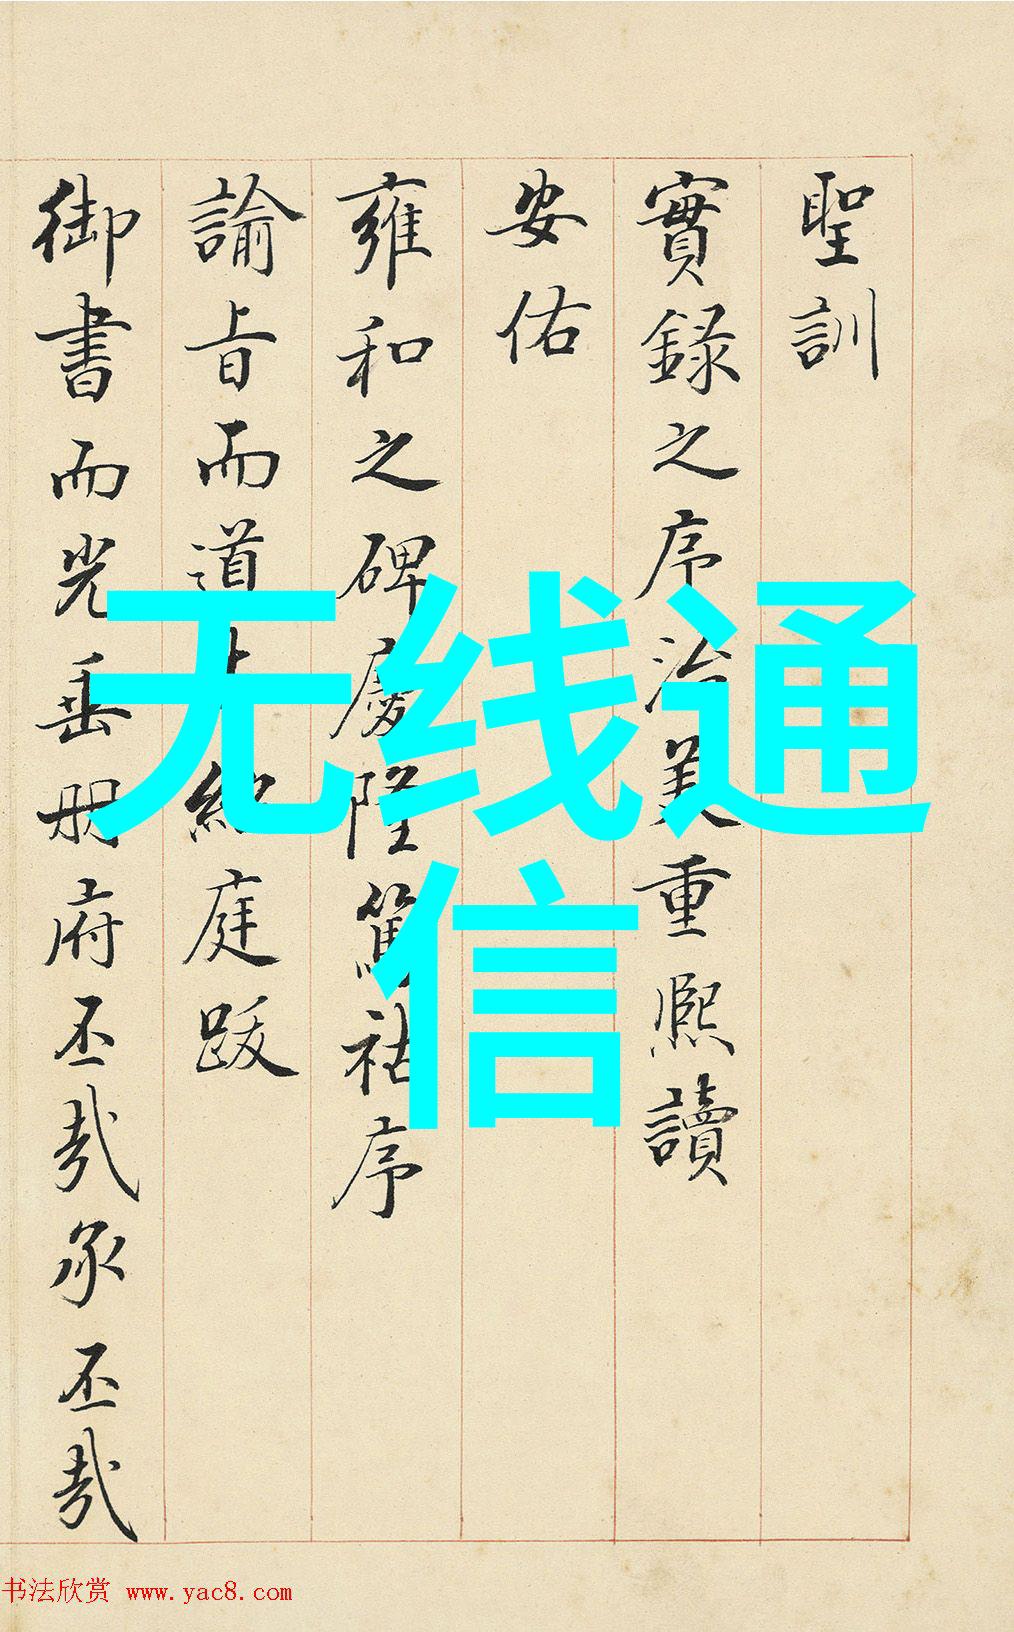 聖訓
實錄之序治美重熙讀
安佑
雍和之碑慶隆篤祜序
諭旨而道 紀庭跋
御書而光垂册府丕哉承丕哉
无线通
信
书法欣赏 www.yac8.com